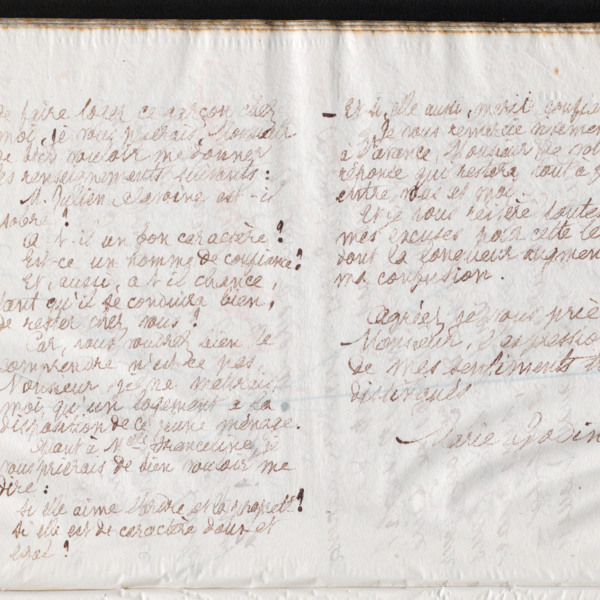 de faire loger ce garçon chez
moi, je vous prierais, Monsieur
de bien vouloir me donner
les renseignements suivants :
M. Jullien est-il
sobre ?
A-t-il un bon caractère ?
Est-ce un homme de confiance ?
Et, aussi, a-t-il chance,
tant qu'il se conduira bien,
de rester chez vous ?
Car, vous voudrez bien le
comprendre n'est-ce pas
Monsieur je ne mettrais,
moi, qu'un logement à la
disposition de ce jeune ménage.
Quant à Melle Franceline, je
vous prierais de bien vouloir me
dire :
Si elle aime l'ordre et la propreté ?
Si elle est de caractère doux et
égal ?
– Et si elle aussi, mérit confian
Je vous remercie
à l'avance, Monsieur de vot
réponse qui restera tout à
entre vous et moi.
Et je vous réitère toutes
mes excuses pour cette le
dont la longueur augmen
ma confusion.
Agréez, je vous prie
Monsieur, l'expression
de mes sentiments
distingués
Marie Godin